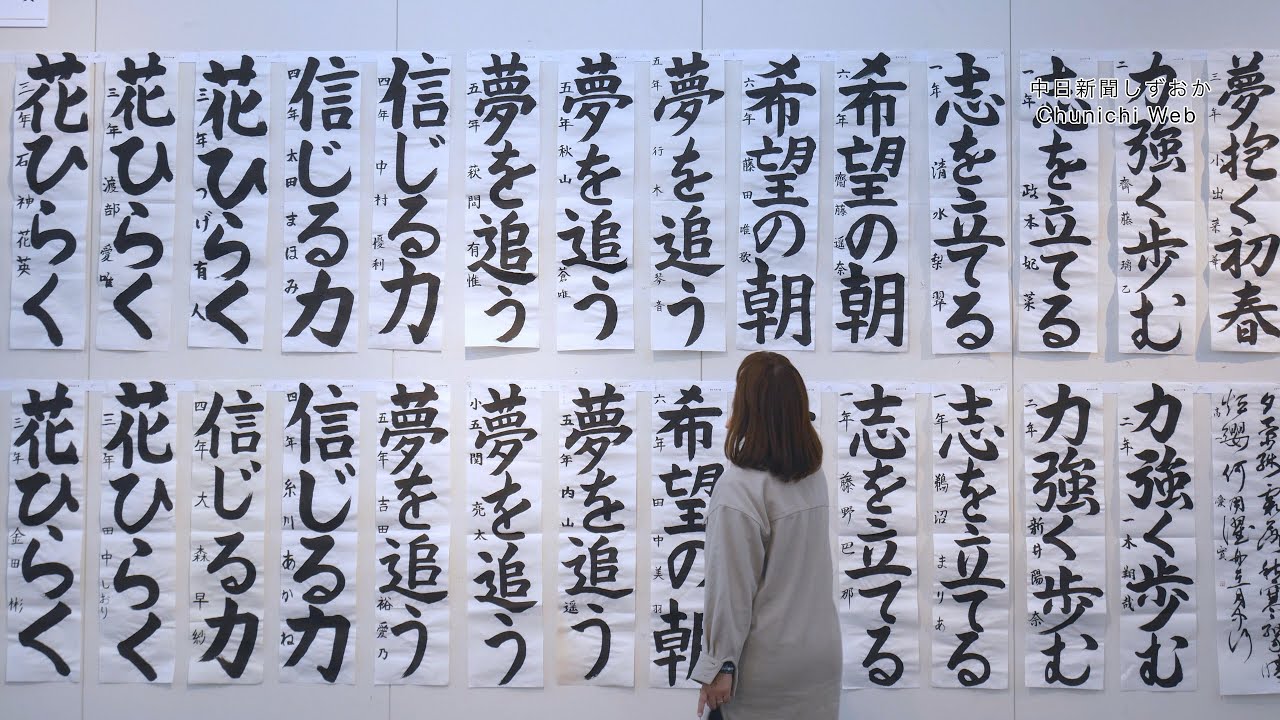 中日新聞しずおか
Chunichi Web
夢抱く初春
三年
力強く歩む
二年 齊藤
志を立てる
政本妃菜
志を立てる
一年 清水梨
希望の朝
六年 齋藤遥奈
希望の朝
六年 藤田唯歌
夢を追う
五年 行木琴音
夢を追う
五年 秋山蒼唯
夢を追う
五年 有惟
信じる力
四年 中村優利
信じる力
四年 太田まほみ
花ひらく
三年 つげ有人
花ひらく
三年 渡部愛唯
花ひらく
三年 石神花英
力強く歩む
二年 一木翔哉
力強く歩む
二年 新井陽奈
志を立てる
一年 鵜沼まりあ
志を立てる
一年 藤野巴那
希望の朝
六年 田中美羽
夢を追う
五年 内山遥
夢を追う
小五 関亮太
夢を追う
五年 吉田裕愛乃
信じる力
四年 糸川あかね
信じる力
四年 大森早紗
花ひらく
三年 田中しおり
花ひらく
三年 金田彬